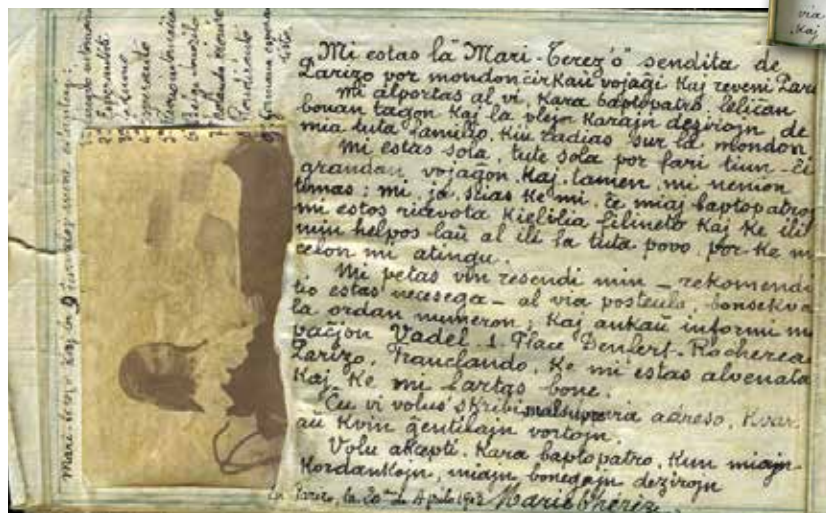 via
kaj
Mi estas la "Mari-Terez'o" sendita de
Parizo por mondonĉirkaŭ vojaĝi kaj reveni
Mi alportas al vi, kara baptopatro, feliĉan
bonan tagon kaj la plej karajn dezirojn de
mia tuta familio, kiu radias sur la mondon
Mi estas sola, tute sola por fari tiun-ĉi
grandan vojaĝon. Kaj tamen, mi nenion
timas; mi ja scias ke mi, ĉe miaj baptopatroj
mi estos ricevota kiel ilia filineto kaj ke ili
min helpos laŭ al ili la tuta povo, por ke mi
celon mi atingu.
Mi petas vin resendi min – rekomendi
tio estas necesega – al via posteulo,
la ordan numeron; kaj ankaŭ informi
Vadel. 1 Place Denfert-Rocherea
Parizo, Franclando, ke mi estas alvenata
kaj ke mi fartas bone.
Ĉu vi volus skribi malsupre via adreso, kvar
aŭ kvin ĝentilajn vortojn.
Volu akcepti, kara baptopatro, kun miajn
Kordankojn, miajn bonegajn dezirojn
Parizo, la 20 de Aprilo
Esperantisto
Esperanto